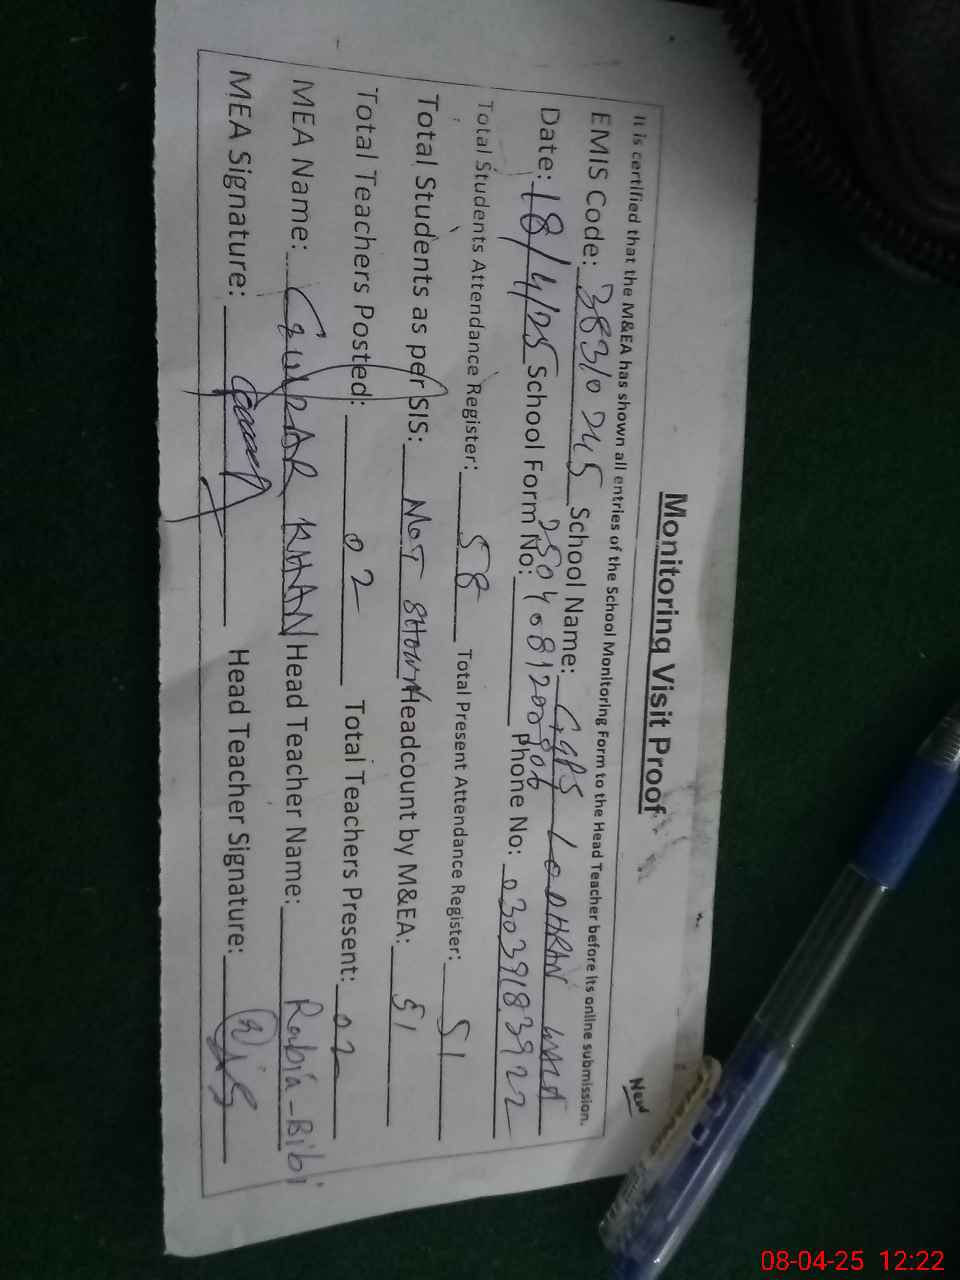 Monitoring Visit Proof
New
It is certified that the M&EA has shown all entries of the School Monitoring Form to the Head Teacher before its online submission.
EMIS Code: 38310245 School Name: GGPS LODHRAN WALA
Date: 18/4/25 School Form No: Phone No: 03039183922
Total Students Attendance Register: 58 Total Present Attendance Register: 51
Total Students as per SIS: NOT SHOWN Headcount by M&EA: 51
Total Teachers Posted: 02 Total Teachers Present: 02
MEA Name: GULZAR KHAN Head Teacher Name: Rabia-Bibi
MEA Signature: Head Teacher Signature:
08-04-25 12:22